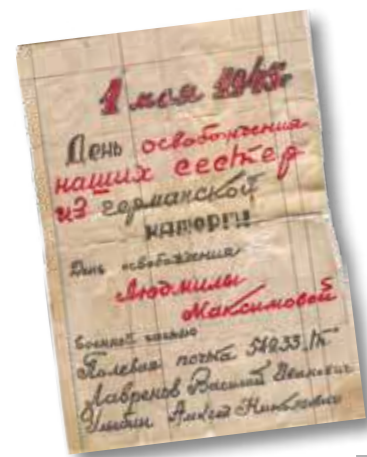 1 мая 1945г
День освобождения
наших сестер
из германской
каторги
День освобождения
Людмилы
Максимовой
Военной частью
Полевая почта 54233.
Лавренов Василий Иванович
Алексей Николаевич